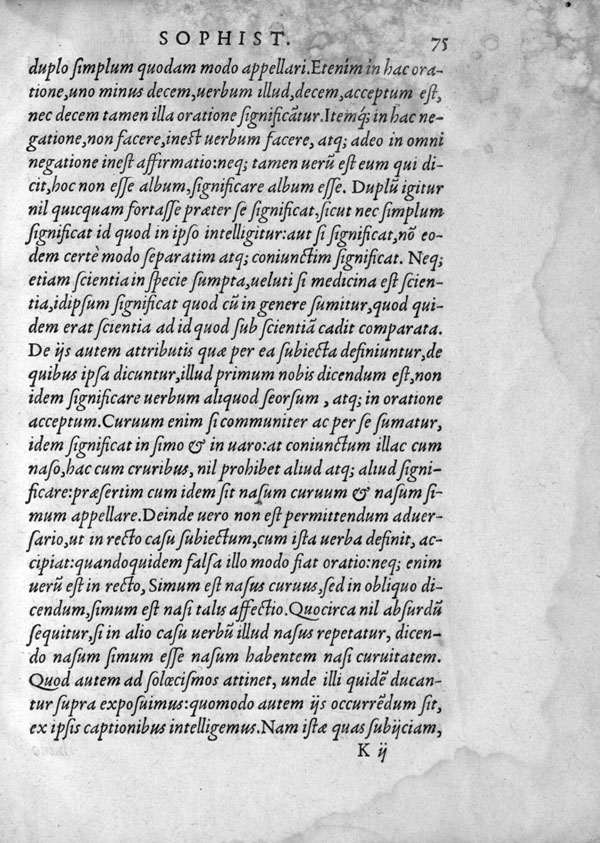 SOPHIST. 75
duplo ſimplum quodam modo appellari.Etenim in hac ora-
tione,uno minus decem,uerbum illud,decem,acceptum eſt,
nec decem tamen illa oratione ſignificãtur.Itemq́; in hac ne-
gatione,non facere,ineſt uerbum facere, atq; adeo in omni
negatione ineſt affirmatio:neq; tamen uerũ eſt eum qui di-
cit,hoc non eſſe album,ſignificare album eſſe. Duplũ igitur
nil quicquam fortaſſe præter ſe ſignificat,ſicut nec ſimplum
ſignificat id quod in ipſo intelligitur:aut ſi ſignificat,nõ eo-
dem certè modo ſeparatim atq; coniunctim ſignificat. Neq;
etiam ſcientia in ſpecie ſumpta,ueluti ſi medicina eſt ſcien-
tia,idipſum ſignificat quod cũ in genere ſumitur,quod qui-
dem erat ſcientia ad id quod ſub ſcientiã cadit comparata.
De ijs autem attributis quæ per ea ſubiecta definiuntur,de
quibus ipſa dicuntur,illud primum nobis dicendum eſt,non
idem ſignificare uerbum aliquod ſeorſum , atq; in oratione
acceptum.Curuum enim ſi communiter ac per ſe ſumatur,
idem ſignificat in ſimo & in uaro:at coniunctum illac cum
naſo,hac cum cruribus, nil prohibet aliud atq; aliud ſigni-
ficare:præſertim cum idem ſit naſum curuum & naſum ſi-
mum appellare.Deinde uero non eſt permittendum aduer-
ſario,ut in recto caſu ſubiectum,cum iſta uerba definit, ac-
cipiat:quandoquidem falſa illo modo fiat oratio:neq; enim
uerũ eſt in recto, Simum eſt naſus curuus,ſed in obliquo di-
cendum,ſimum eſt naſi talis affectio.Quocirca nil abſurdũ
ſequitur,ſi in alio caſu uerbũ illud naſus repetatur, dicen-
do naſum ſimum eſſe naſum habentem naſi curuitatem.
Quod autem ad ſolœciſmos attinet, unde illi quidẽ ducan-
tur ſupra expoſuimus:quomodo autem ijs occurrẽdum ſit,
ex ipſis captionibus intelligemus.Nam iſtæ quas ſubijciam,
K ij